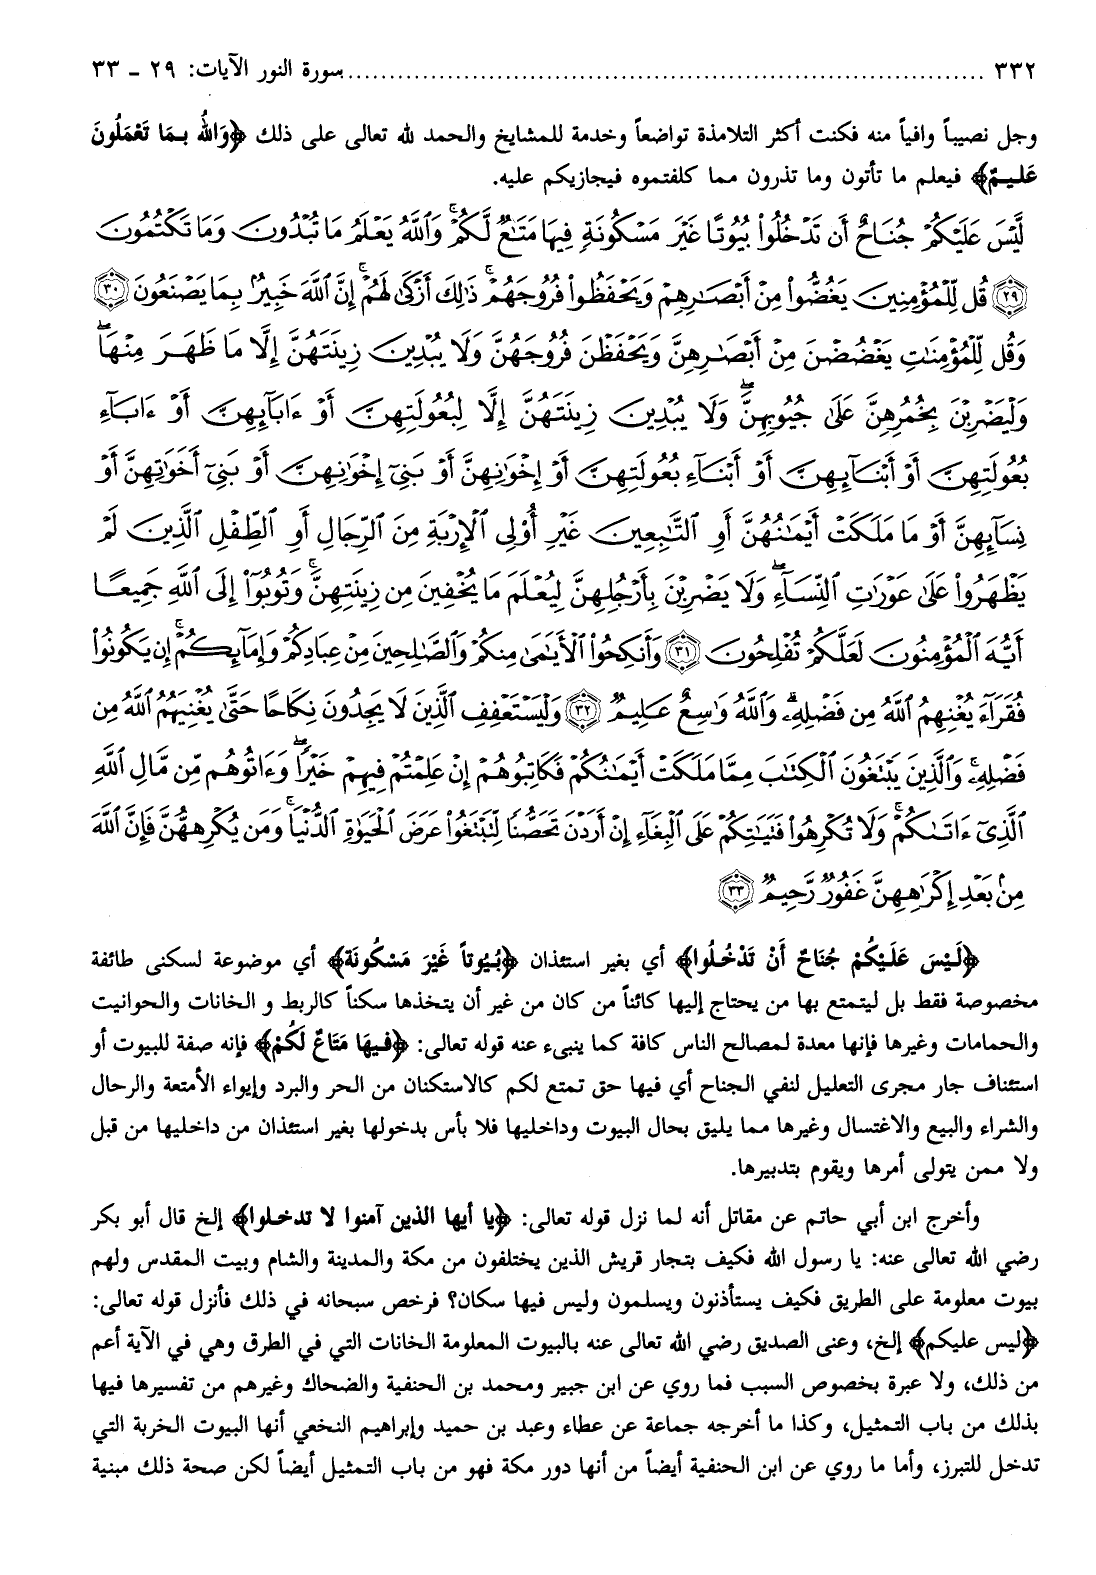 ٣٣٢ ........................................................ سورة النور الآيات: ٢٩ - ٣٣
وجل نصيباً وافياً منه فكنت أكثر التلامذة تواضعاً وخدمة للمشايخ والحمد لله تعالى على ذلك ﴿وَاللهُ بِمَا تَعْمَلُونَ
عَلِيمٌ﴾ فيعلم ما تأتون وما تذرون مما كلفتموه فيجازيكم عليه.
لَّيْسَ عَلَيْكُمْ جُنَاحٌ أَن تَدْخُلُوا۟ بُيُوتًا غَيْرَ مَسْكُونَةٍ فِيهَا مَتَٰعٌ لَّكُمْ ۚ وَٱللَّهُ يَعْلَمُ مَا تُبْدُونَ وَمَا تَكْتُمُونَ
﴿٢٩﴾ قُل لِّلْمُؤْمِنِينَ يَغُضُّوا۟ مِنْ أَبْصَٰرِهِمْ وَيَحْفَظُوا۟ فُرُوجَهُمْ ۚ ذَٰلِكَ أَزْكَىٰ لَهُمْ ۗ إِنَّ ٱللَّهَ خَبِيرٌۢ بِمَا يَصْنَعُونَ ﴿٣٠﴾
وَقُل لِّلْمُؤْمِنَٰتِ يَغْضُضْنَ مِنْ أَبْصَٰرِهِنَّ وَيَحْفَظْنَ فُرُوجَهُنَّ وَلَا يُبْدِينَ زِينَتَهُنَّ إِلَّا مَا ظَهَرَ مِنْهَا ۖ
وَلْيَضْرِبْنَ بِخُمُرِهِنَّ عَلَىٰ جُيُوبِهِنَّ ۖ وَلَا يُبْدِينَ زِينَتَهُنَّ إِلَّا لِبُعُولَتِهِنَّ أَوْ ءَابَآئِهِنَّ أَوْ ءَابَآءِ
بُعُولَتِهِنَّ أَوْ أَبْنَآئِهِنَّ أَوْ أَبْنَآءِ بُعُولَتِهِنَّ أَوْ إِخْوَٰنِهِنَّ أَوْ بَنِىٓ إِخْوَٰنِهِنَّ أَوْ بَنِىٓ أَخَوَٰتِهِنَّ أَوْ
نِسَآئِهِنَّ أَوْ مَا مَلَكَتْ أَيْمَٰنُهُنَّ أَوِ ٱلتَّٰبِعِينَ غَيْرِ أُو۟لِى ٱلْإِرْبَةِ مِنَ ٱلرِّجَالِ أَوِ ٱلطِّفْلِ ٱلَّذِينَ لَمْ
يَظْهَرُوا۟ عَلَىٰ عَوْرَٰتِ ٱلنِّسَآءِ ۖ وَلَا يَضْرِبْنَ بِأَرْجُلِهِنَّ لِيُعْلَمَ مَا يُخْفِينَ مِن زِينَتِهِنَّ ۚ وَتُوبُوٓا۟ إِلَى ٱللَّهِ جَمِيعًا
أَيُّهَ ٱلْمُؤْمِنُونَ لَعَلَّكُمْ تُفْلِحُونَ ﴿٣١﴾ وَأَنكِحُوا۟ ٱلْأَيَٰمَىٰ مِنكُمْ وَٱلصَّٰلِحِينَ مِنْ عِبَادِكُمْ وَإِمَآئِكُمْ ۚ إِن يَكُونُوا۟
فُقَرَآءَ يُغْنِهِمُ ٱللَّهُ مِن فَضْلِهِۦ ۗ وَٱللَّهُ وَٰسِعٌ عَلِيمٌ ﴿٣٢﴾ وَلْيَسْتَعْفِفِ ٱلَّذِينَ لَا يَجِدُونَ نِكَاحًا حَتَّىٰ يُغْنِيَهُمُ ٱللَّهُ مِن
فَضْلِهِۦ ۗ وَٱلَّذِينَ يَبْتَغُونَ ٱلْكِتَٰبَ مِمَّا مَلَكَتْ أَيْمَٰنُكُمْ فَكَاتِبُوهُمْ إِنْ عَلِمْتُمْ فِيهِمْ خَيْرًا ۖ وَءَاتُوهُم مِّن مَّالِ ٱللَّهِ
ٱلَّذِىٓ ءَاتَىٰكُمْ ۚ وَلَا تُكْرِهُوا۟ فَتَيَٰتِكُمْ عَلَى ٱلْبِغَآءِ إِنْ أَرَدْنَ تَحَصُّنًا لِّتَبْتَغُوا۟ عَرَضَ ٱلْحَيَوٰةِ ٱلدُّنْيَا ۚ وَمَن يُكْرِههُّنَّ فَإِنَّ ٱللَّهَ
مِنۢ بَعْدِ إِكْرَٰهِهِنَّ غَفُورٌ رَّحِيمٌ ﴿٣٣﴾
﴿لَيْسَ عَلَيْكُمْ جُنَاحٌ أَنْ تَدْخُلُوا﴾ أي بغير استئذان ﴿بُيُوتاً غَيْرَ مَسْكُونَة﴾ أي موضوعة لسكنى طائفة
مخصوصة فقط بل ليتمتع بها من يحتاج إليها كائناً من كان من غير أن يتخذها سكناً كالربط و الخانات والحوانيت
والحمامات وغيرها فإنها معدة لمصالح الناس كافة كما ينبىء عنه قوله تعالى: ﴿فِيهَا مَتَاعٌ لَكُمْ﴾ فإنه صفة للبيوت أو
استئناف جار مجرى التعليل لنفي الجناح أي فيها حق تمتع لكم كالاستكنان من الحر والبرد وإيواء الأمتعة والرحال
والشراء والبيع والاغتسال وغيرها مما يليق بحال البيوت وداخليها فلا بأس بدخولها بغير استئذان من داخليها من قبل
ولا ممن يتولى أمرها ويقوم بتدبيرها.
وأخرج ابن أبي حاتم عن مقاتل أنه لما نزل قوله تعالى: ﴿يا أيها الذين آمنوا لا تدخلوا﴾ إلخ قال أبو بكر
رضي الله تعالى عنه: يا رسول الله فكيف بتجار قريش الذين يختلفون من مكة والمدينة والشام وبيت المقدس ولهم
بيوت معلومة على الطريق فكيف يستأذنون ويسلمون وليس فيها سكان؟ فرخص سبحانه في ذلك فأنزل قوله تعالى:
﴿ليس عليكم﴾ إلخ، وعنى الصديق رضي الله تعالى عنه بالبيوت المعلومة الخانات التي في الطرق وهي في الآية أعم
من ذلك، ولا عبرة بخصوص السبب فما روي عن ابن جبير ومحمد بن الحنفية والضحاك وغيرهم من تفسيرها فيها
بذلك من باب التمثيل، وكذا ما أخرجه جماعة عن عطاء وعبد بن حميد وإبراهيم النخعي أنها البيوت الخربة التي
تدخل للتبرز، وأما ما روي عن ابن الحنفية أيضاً من أنها دور مكة فهو من باب التمثيل أيضاً لكن صحة ذلك مبنية